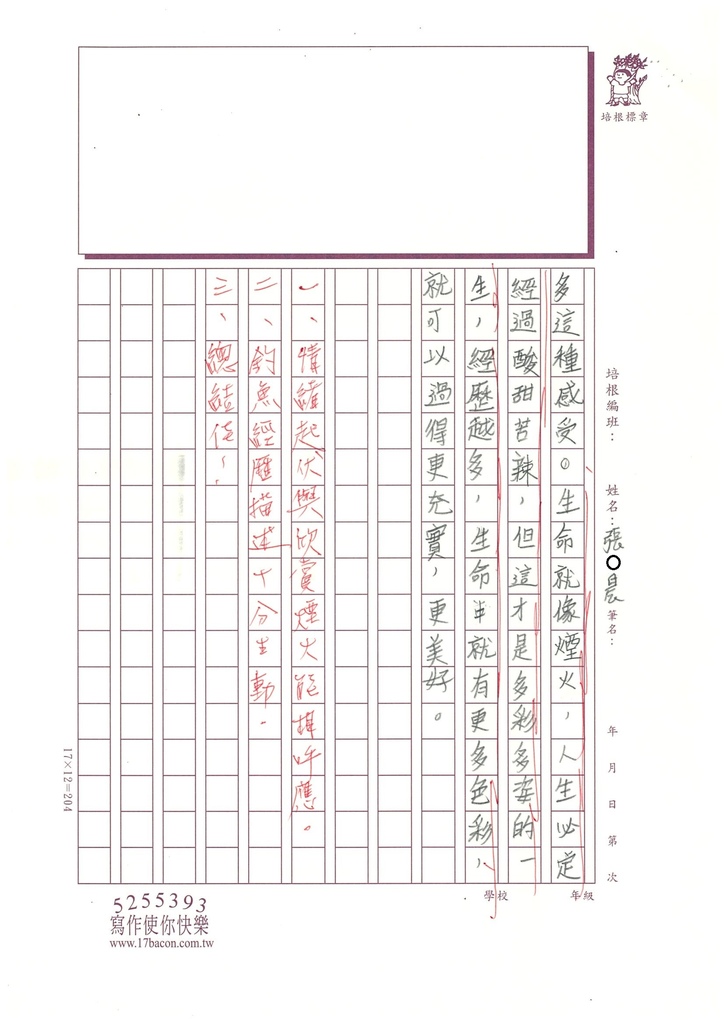 培根標章
培根編班：
姓名：張○晨
筆名：
年 月 日 第 次
學校
年級
多這種感受。生命就像煙火，人生必定
經過酸甜苦辣，但這才是多彩多姿的一
生，經歷越多，生命就有更多色彩，
就可以過得更充實，更美好。
一、情緒起伏與欣賞煙火能相呼應。
二、釣魚經歷描述十分生動。
三、總結佳、
17×12=204
5255393
寫作使你快樂
www.17bacon.com.tw